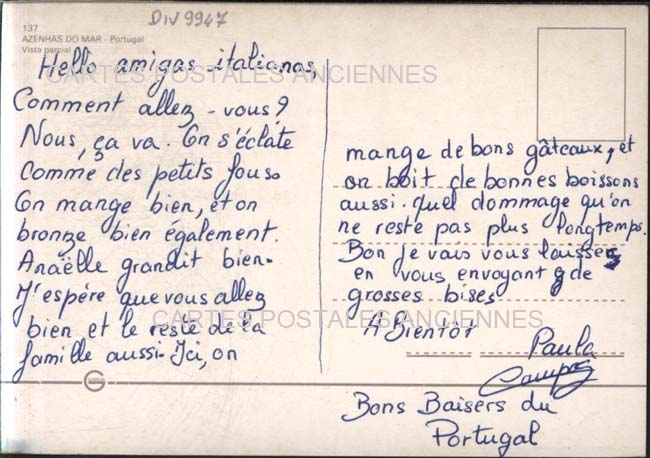 DIV 9947
137
AZENHAS DO MAR - Portugal
Vista parcial
CARTES POSTALES ANCIENNES
Hello amigas italianas,
Comment allez-vous?
Nous, ça va. On s'éclate
Comme des petits fous.
On mange bien, et on
bronze bien également.
Anaëlle grandit bien.
J'espère que vous allez
bien et le reste de la
famille aussi. Ici, on
mange de bons gâteaux, et
on boit de bonnes boissons
aussi. Quel dommage qu'on
ne reste pas plus longtemps.
Bon je vais vous laisser
en vous envoyant de
grosses bises
CARTES POSTALES ANCIENNES
A Bientôt
Paula
Campos
Bons Baisers du
Portugal